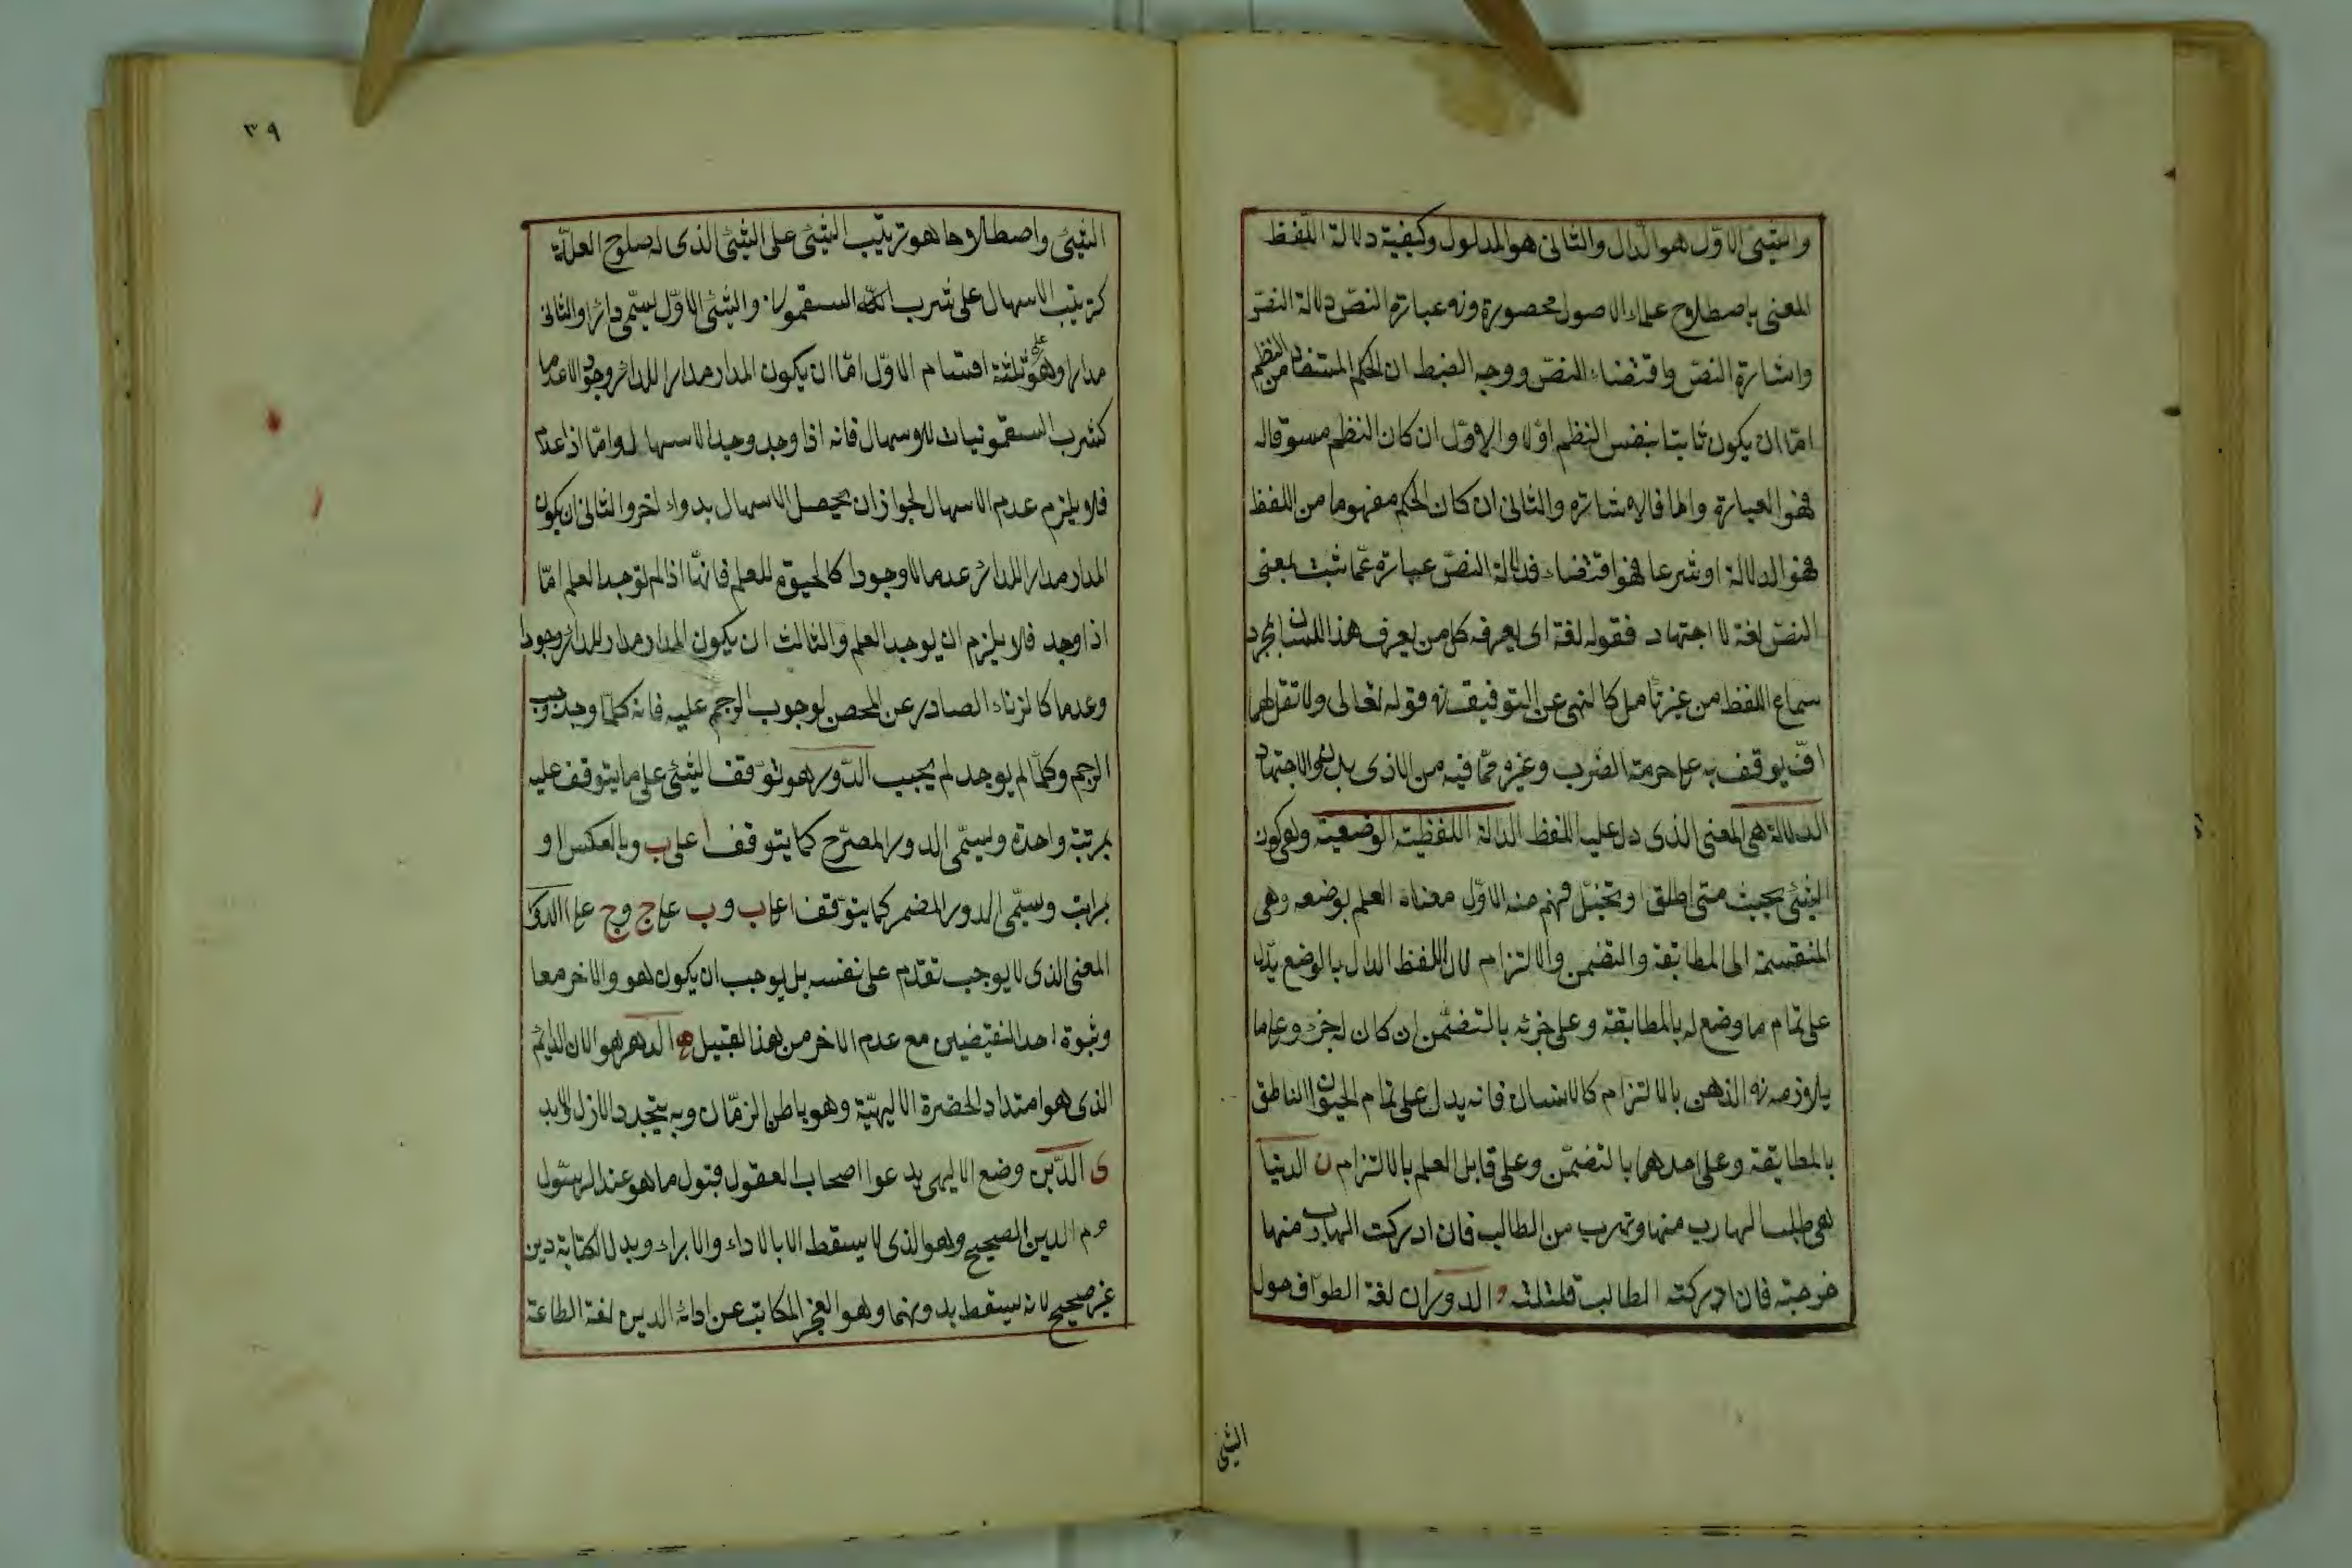 والشيئ الاوّل هو الدّال والثانى هو المدلول وكيفية دلالة اللّفظ
المعنى باصطلاح علماء الاصول محصورة فى عبارة النصّ دلالة النصّ
واشارة النصّ واقتضاء النصّ ووجه الضبط ان الحكم المستفاد من النظم
امّا ان يكون ثابتا بنفس النظم اولا والاوّل ان كان النظم مسوقا له
فهو العبارة والا فالاشارة والثانى ان كان الحكم مفهوما من اللفظ
فهو الدلالة او شرعا فهو اقتضاء فدلالة النصّ عبارة عمّا ثبت بمعنى
النصّ لغة لا اجتهاد فقوله لغة اى يعرفه كل من يعرف هذا اللسان بمجرد
سماع اللفظ من غير تأمل كالنهى عن التوفيف فى قوله تعالى ولا تقل لهما
افّ يوقف به على حرمة الضرب وغيره ممّا فيه من الاذى بلا الاجتهاد
الدلالة هى المعنى الذى دل عليه اللفظ الدالة اللفظية الوضعية وهى كون
الشيئ بحيث متى اطلق او تخيّل فهم منه الاوّل معناه العلم بوضعه وهى
المنقسمة الى المطابقة والتضمن والالتزام لان اللفظ الدال بالوضع يدل
على تمام ما وضع له بالمطابقة وعلى جزئه بالتضمّن ان كان له جزء وعلى ما
يلازمه فى الذهن بالالتزام كالانسان فانه يدل على تمام الحيوان الناطق
بالمطابقة وعلى احدهما بالتضمّن وعلى قابل العلم بالالتزام ن الدنيا
هى طلب الهارب منها وتهرب من الطالب فان ادركت الهارب منها
خرجته فان ادركته الطالب قلتلته و الدوران لغة الطواف حول
الشئ
٣٩
الشيئ واصطلاحا هو ترتيب الشيئ على الشيئ الذى له صلوح العلّية
كترتيب الاسهال على شرب السقمونيا والشيئ الاوّل يسمّى دائرا والثانى
مدارا وهو على ثلثة اقسام الاوّل امّا ان يكون المدار مدارا للدائر وجودا لا عدما
كشرب السقمونيات للاسهال فانه اذا وجد وجد الاسهال وامّا اذا عدم
فلا يلزم عدم الاسهال لجواز ان يحصل الاسهال بدواء اخر والثانى ان يكون
المدار مدارا للدائر عدما لا وجودا كالحيوة للعلم فانها اذا لم توجد العلم امّا
اذا وجد فلا يلزم ان يوجد العلم والثالث ان يكون المدار مدار للدائر وجودا
وعدما كالزناء الصادر عن المحصن لوجوب الرجم عليه فانه كلّما وجد وجب
الرجم وكلّما لم يوجد لم يجب الدّور هو توقّف الشيئ على ما يتوقف عليه
بمرتبة واحدة ويسمّى الدور المصرّح كما يتوقف أ على ب وبالعكس او
بمراتب وسيمّى الدور المضمر كما يتوقف ا على ب و ب على ج و ج على ا
المعنى الذى لا يوجب تقدّم على نفسه بل يوجب ان يكون هو والاخر معا
وثبوة احد النقيضين مع عدم الاخر من هذا القبيل ه الدهر هو الان الدائم
الذى هو امتداد الحضرة الالهيّة وهو باطن الزمّان وبه يتجدد الازل والابد
ى الدّين وضع الالهى يدعوا اصحاب العقول قبول ما هو عند الرسّول
م الدين الصحيح وهو الذى لا يسقط الا بالاداء والابراء وبدل الكتابة دين
غير صحيح لانه يسقط بدونهما وهو العجز المكاتب عن ادائه الدين لغة الطاعة